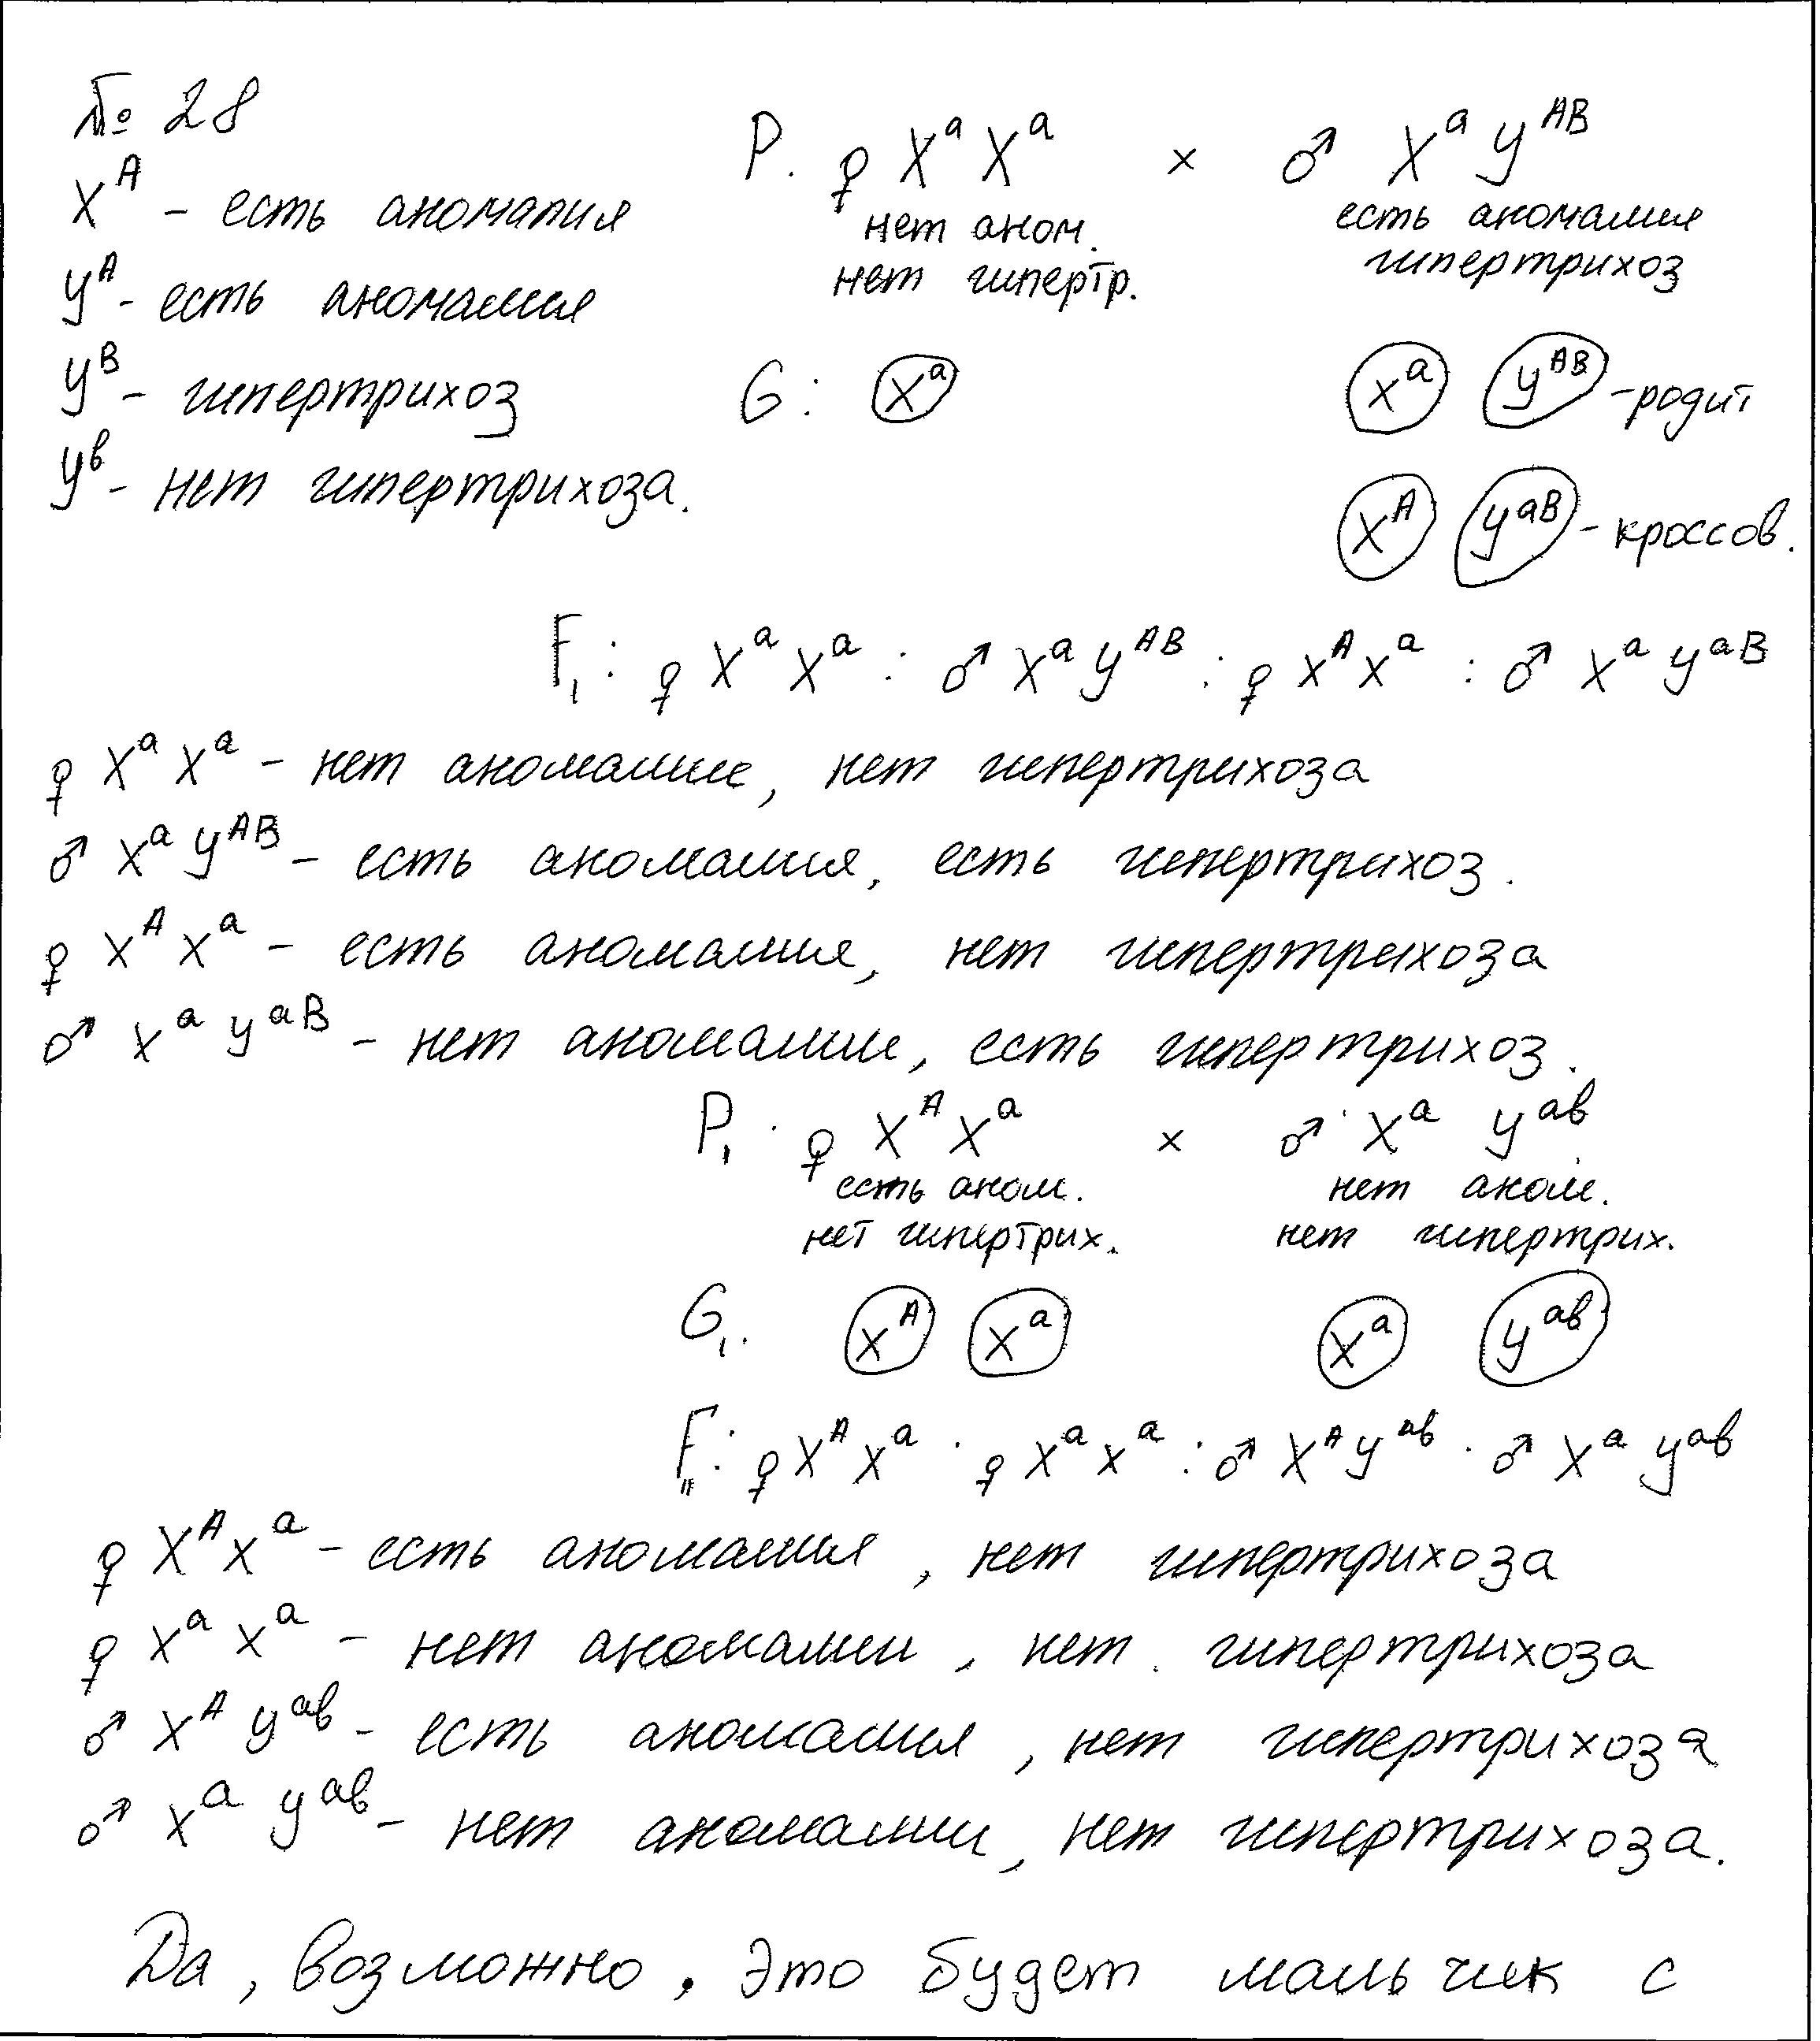 № 28
P. ♀ XᵃXᵃ × ♂ Xᵃ Yᴬᴮ
Xᴬ - есть аномалия
нет аном. есть аномалия
нет гипертр. гипертрихоз
Yᴬ - есть аномалия
Yᴮ - гипертрихоз
G: Xᵃ Xᵃ Yᴬᴮ - родит
Yᵇ - нет гипертрихоза.
Xᴬ Yᵃᴮ - кроссов.
F₁: ♀ XᵃXᵃ : ♂ XᵃYᴬᴮ : ♀ XᴬXᵃ : ♂ XᵃYᵃᴮ
♀ XᵃXᵃ - нет аномалии, нет гипертрихоза
♂ XᵃYᴬᴮ - есть аномалия, есть гипертрихоз.
♀ XᴬXᵃ - есть аномалия, нет гипертрихоза
♂ XᵃYᵃᴮ - нет аномалии, есть гипертрихоз.
P₁. ♀ XᴬXᵃ × ♂ Xᵃ Yᵃᵇ
есть аном. нет аном.
нет гипертрих. нет гипертрих.
G₁. Xᴬ Xᵃ Xᵃ Yᵃᵇ
F₁₁: ♀ XᴬXᵃ : ♀ XᵃXᵃ : ♂ XᴬYᵃᵇ : ♂ XᵃYᵃᵇ
♀ XᴬXᵃ - есть аномалия, нет гипертрихоза
♀ XᵃXᵃ - нет аномалии, нет гипертрихоза
♂ XᴬYᵃᵇ - есть аномалия, нет гипертрихоза
♂ XᵃYᵃᵇ - нет аномалии, нет гипертрихоза.
Да, возможно. Это будет мальчик с